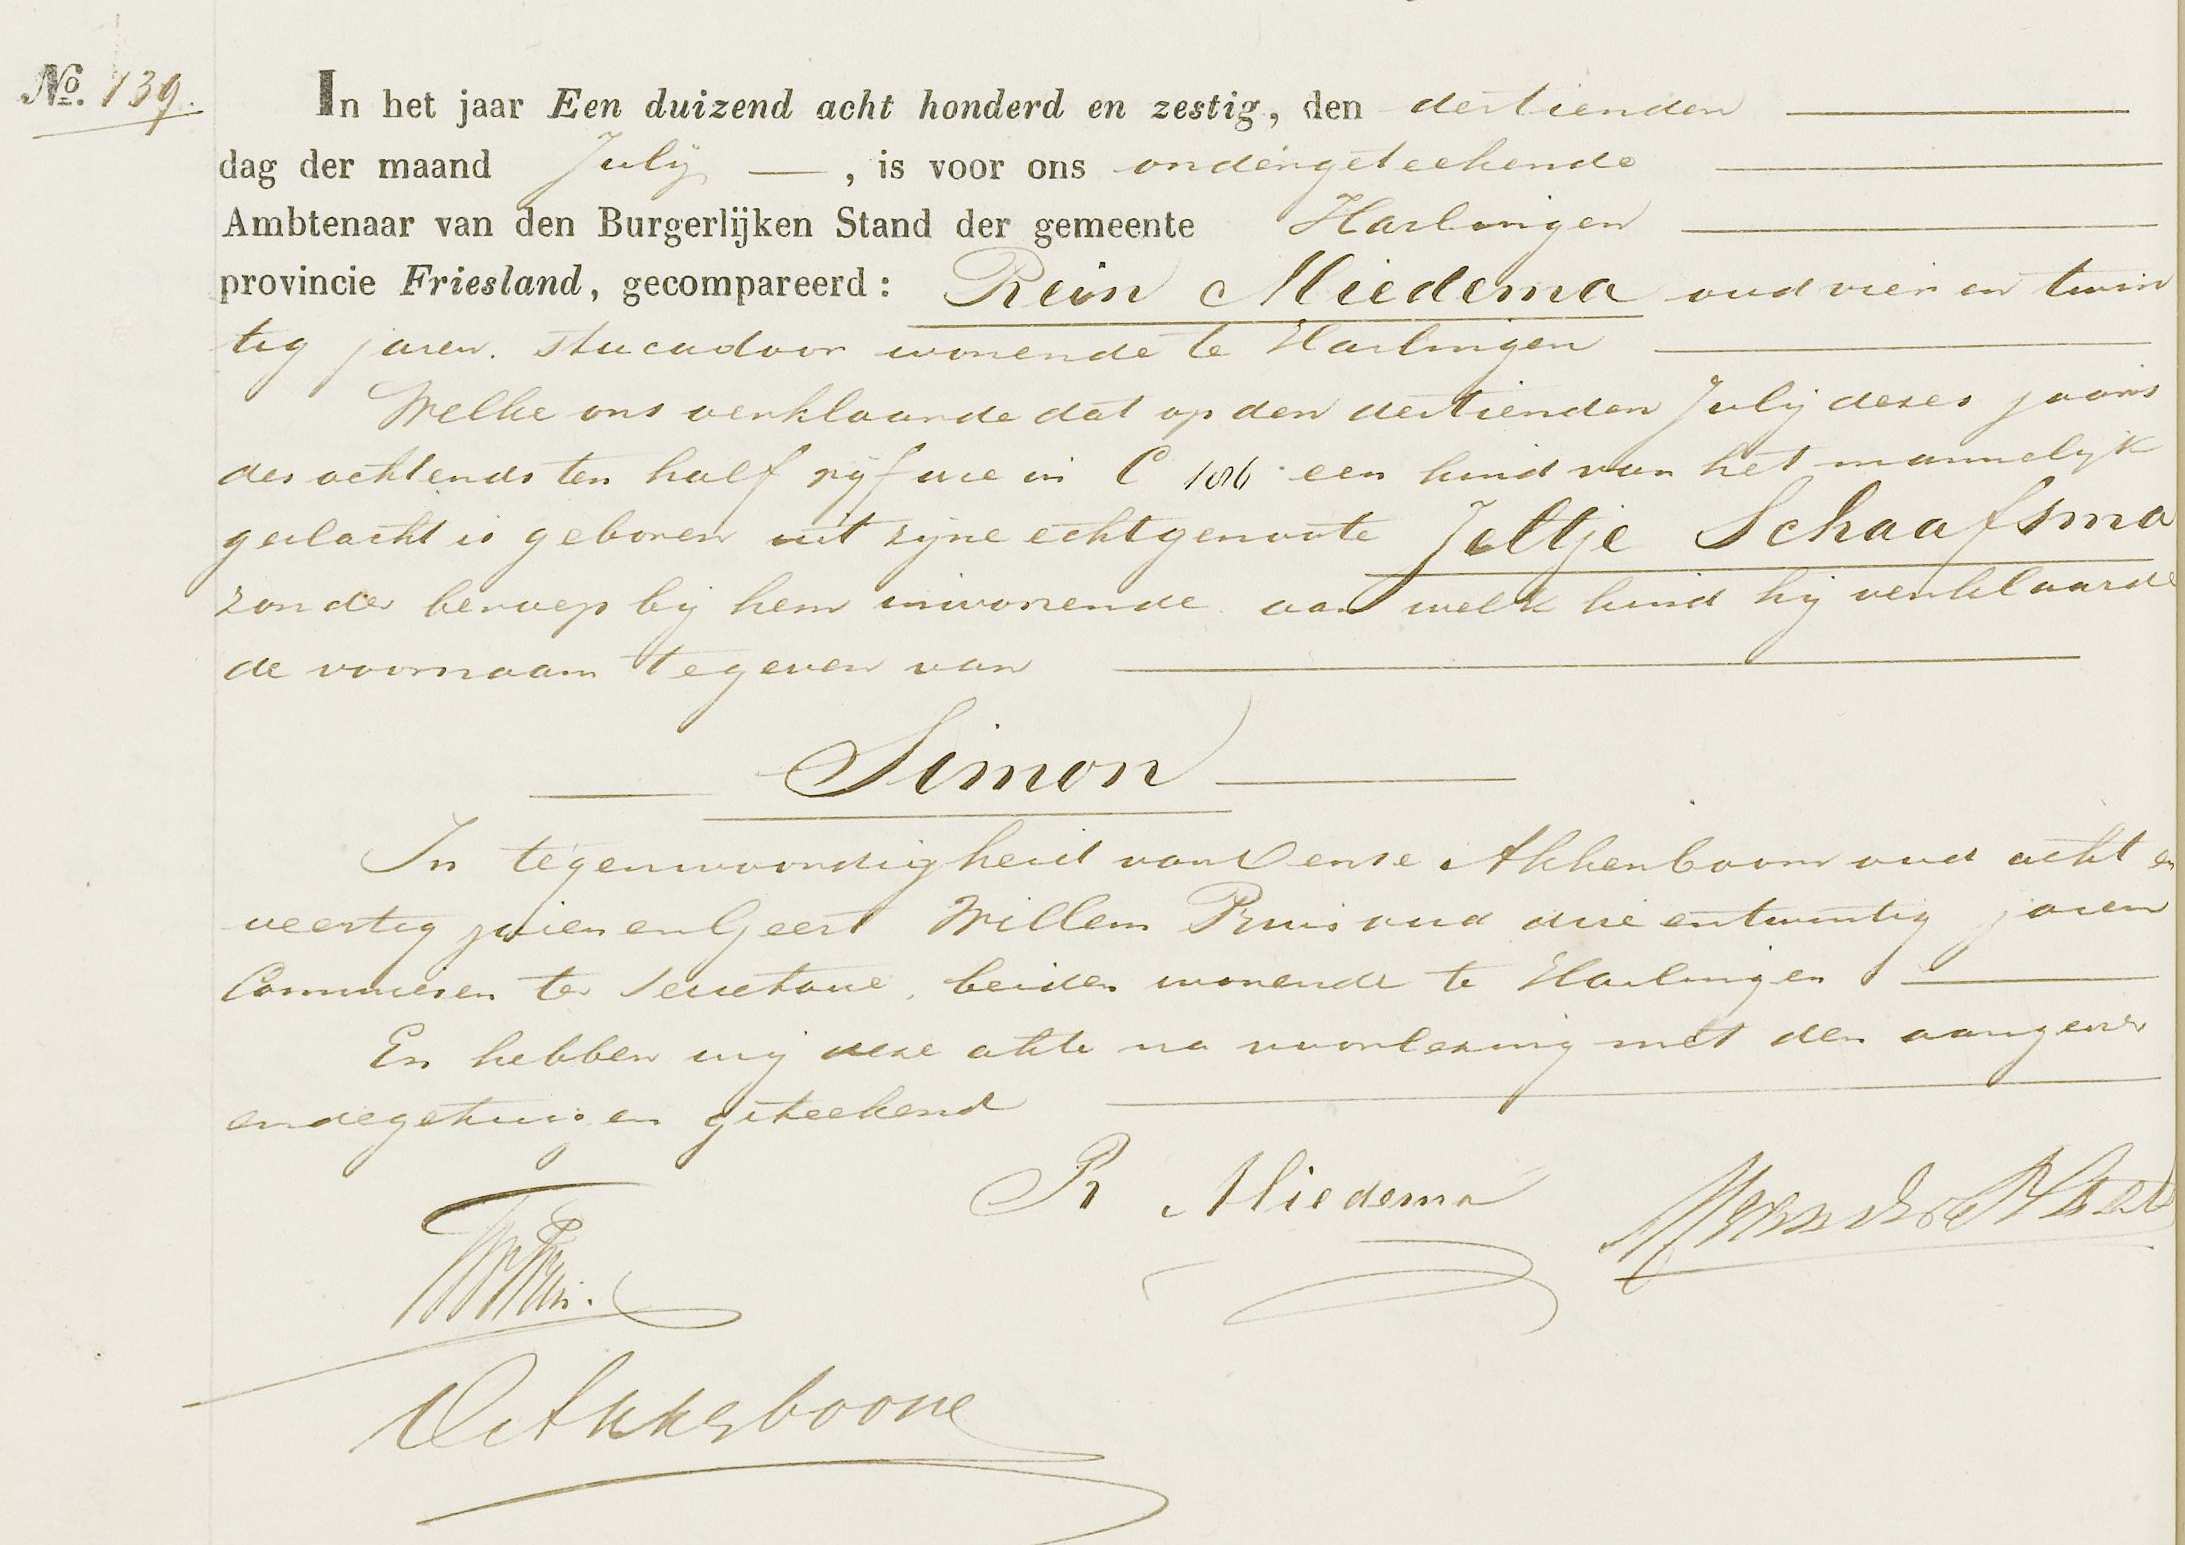 No. 139.
In het jaar Een duizend acht honderd en zestig, den dertienden
dag der maand Julij, is voor ons ondergeteekende
Ambtenaar van den Burgerlijken Stand der gemeente Harlingen
provincie Friesland, gecompareerd: Rein Miedema oud vier en twin
tig jaren. stucadoor wonende te Harlingen
Welke ons verklaarde dat op den dertienden Julij dezes jaars
des ochtends ten half vijf ure in C 186 een kind van het mannelijk
geslacht is geboren uit zijne echtgenoote Jeltje Schaafsma
zonder beroep bij hem inwonende aan welk kind hij verklaarde
de voornaam te geven van
Simon
In tegenwoordigheid van Akkerboom oud acht en
veertig jaren en Geert Willem Pruis oud drie en twintig jaren
Commiesen ter Secretarie, beiden wonende te Harlingen
En hebben wij deze akte na voorlezing met den aangever
en de getuigen geteekend
R Miedema
Akkerboom